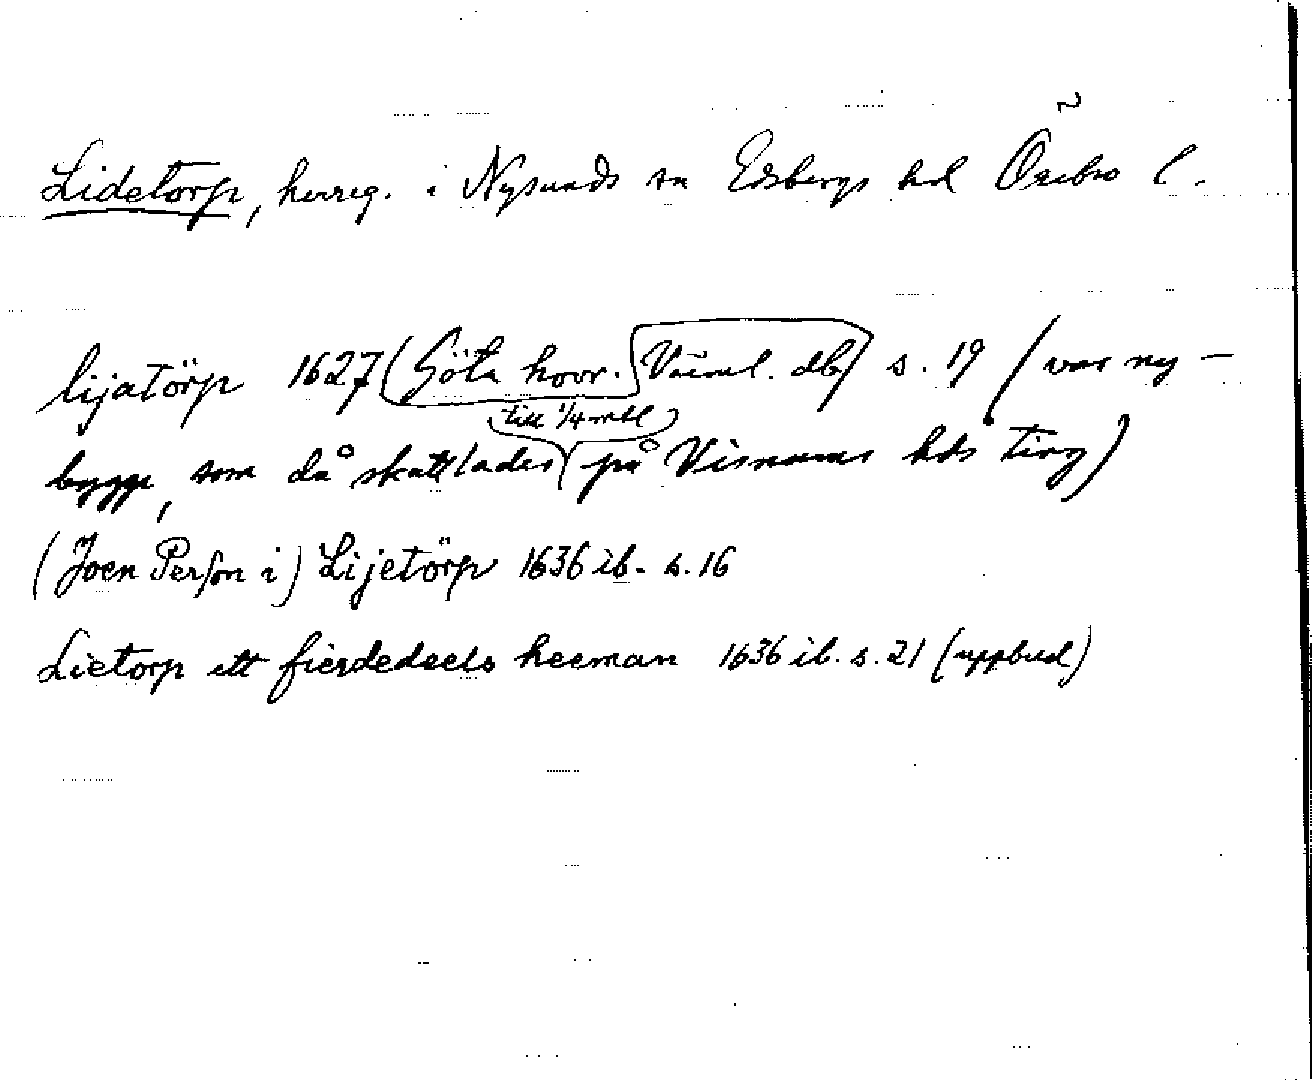 2
Lidetorp, herrg. i Nysunds sn Edsbergs hd Örebro l.
lijatörp 1627 (Göta hovr. Värml. db) s. 19 (var ny-
till 1/4 mtl
bygge, som då skattlades på Visnums hds ting)
(Joen Perſon i) Lijetörp 1636 ib. s. 16
Lietorp ett fierdedeels heeman 1636 ib. s. 21 (uppbud)